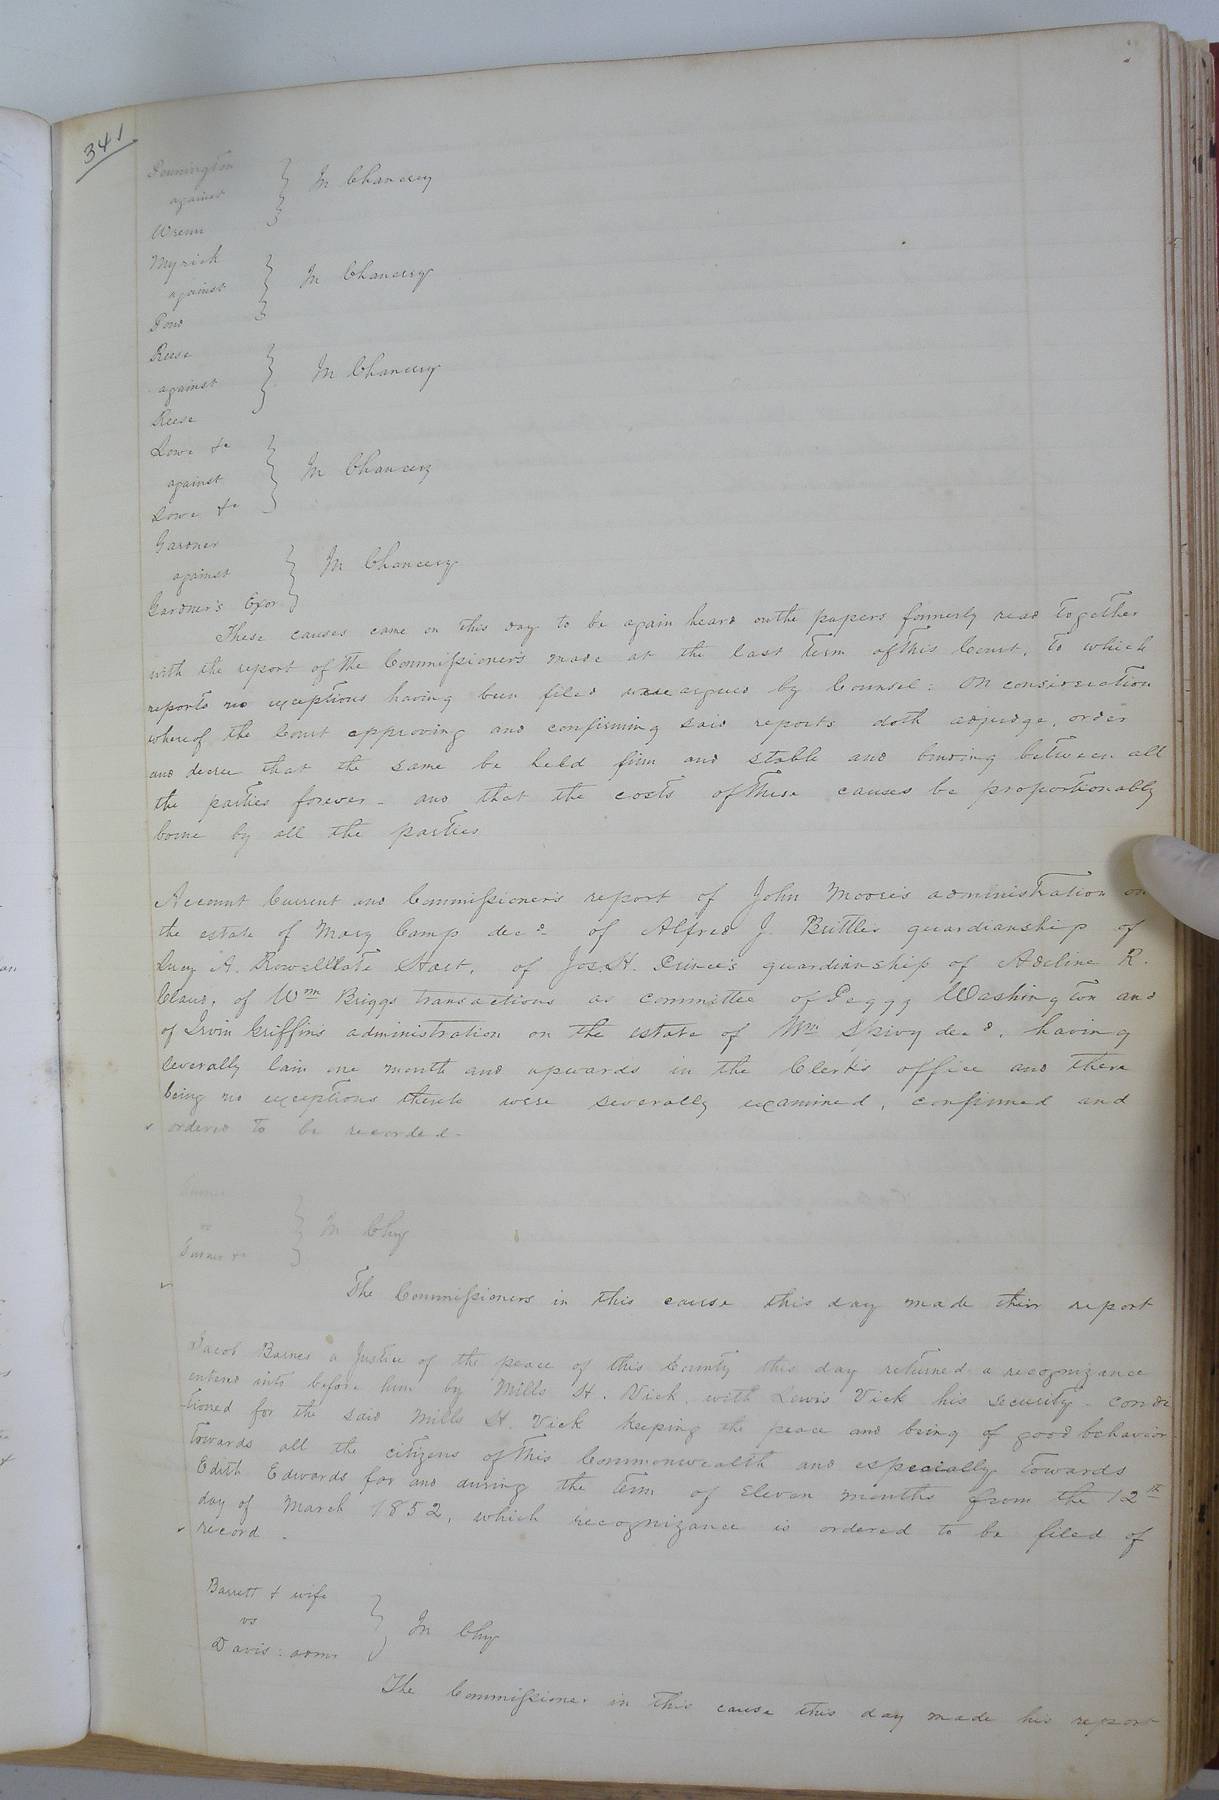 341
Pennington
against } In Chancery
Wrenn
Myrick
against } In Chancery
Pond
Reese
against } In Chancery
Reese
Lowe &c
against } In Chancery
Lowe &c
Gardner
against } In Chancery
Gardner's Exor
These causes came on this day to be again heard on the papers formerly read together
with the report of the Commissioners made at the last term of this Court, to which
reports no exceptions having been filed were argued by Counsel: On consideration
whereof the Court approving and confirming said reports doth adjudge, order
and decree that the same be held firm and stable and binding between all
the parties forever - and that the costs of these causes be proportionably
borne by all the parties
Account Current and Commissioners report of John Moore's administration on
the estate of Mary Camp decd of Alfred J. Brittle's guardianship of
Lucy A. Rowell late Hart, of Jos. H. Prince's guardianship of Adeline R.
Claud, of Wm Briggs transactions as committee of Peggy Washington and
of Irvin Griffin's administration on the estate of Wm Spivy decd, having
severally lain one month and upwards in the Clerk's office and there
being no exceptions thereto were severally examined, confirmed and
ordered to be recorded -
vs } In Chy
Turner &c
The Commissioners in this cause this day made their report
Jacob Barnes a Justice of the peace of this County this day returned a recognizance
entered into before him by Mills H. Vick, with Lewis Vick his security - condi
-tioned for the said Mills H. Vick keeping the peace and being of good behavior
towards all the citizens of this Commonwealth and especially towards
Edith Edwards for and during the term of Eleven months from the 12th
day of March 1852, which recognizance is ordered to be filed of
record -
Barrett & wife
vs } In Chy
Davis: admr
The Commissioner in this cause this day made his report